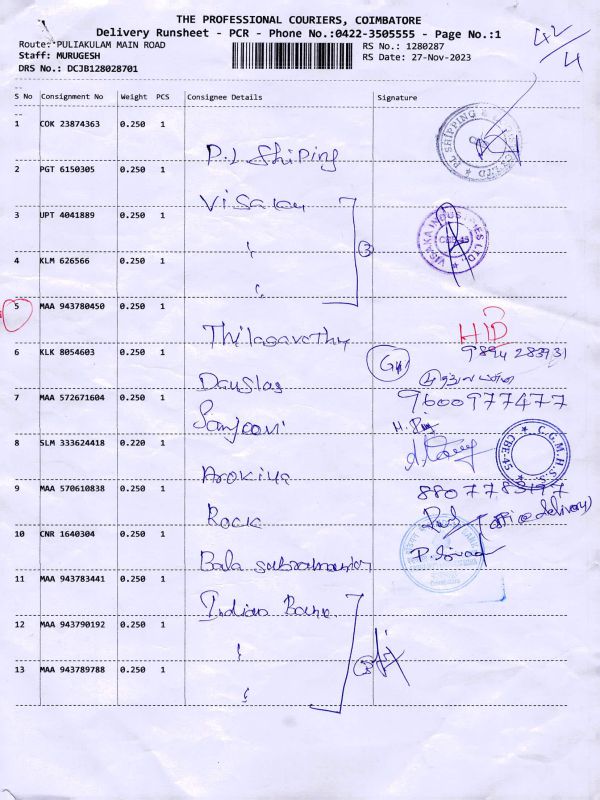 THE PROFESSIONAL COURIERS, COIMBATORE
Delivery Runsheet - PCR - Phone No.:0422-3505555 - Page No.:1
Route: PULIAKULAM MAIN ROAD RS No.: 1280287
Staff: MURUGESH RS Date: 27-Nov-2023
DRS No.: DCJB128028701
42/4
S No Consignment No Weight PCS Consignee Details Signature
1 COK 23874363 0.250 1
P.L Shiping
2 PGT 6150305 0.250 1
Visaka
3 UPT 4041889 0.250 1
"
VISAKA INDUSTRIES LTD. CBE-45
4 KLM 626566 0.250 1
"
3
5 MAA 943780450 0.250 1
Thilagavathy HID
6 KLK 8054603 0.250 1
Dauslas
7 MAA 572671604 0.250 1
9600977477
Sanjeevi
8 SLM 333624418 0.220 1
C.G.M.H.S.S. CBE-45
Arokiya
9 MAA 570610838 0.250 1
Rock
10 CNR 1640304 0.250 1
Bala subramanian
11 MAA 943783441 0.250 1
Indian Bank
12 MAA 943790192 0.250 1
"
3
13 MAA 943789788 0.250 1
"